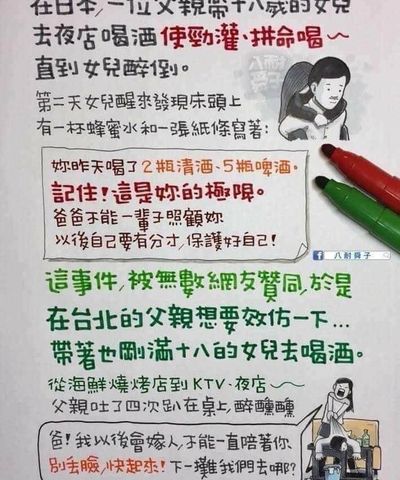 在日本，一位父親帶十八歲的女兒
去夜店喝酒 使勁灌、拼命喝～
直到女兒醉倒。
第二天女兒醒來發現床頭上
有一杯蜂蜜水和一張紙條寫著：
妳昨天喝了2瓶清酒、5瓶啤酒。
記住！這是妳的極限。
爸爸不能一輩子照顧妳
以後自己要有分寸，保護好自己！
f 八耐舜子
這事件，被無數網友贊同，於是
在台北的父親想要效仿一下…
帶著也剛滿十八的女兒去喝酒。
從海鮮燒烤店到KTV、夜店～
父親吐了四次趴在桌上，醉醺醺
爸！我以後會嫁人，不能一直陪著你
別丟臉，快起來！下一攤我們去哪？